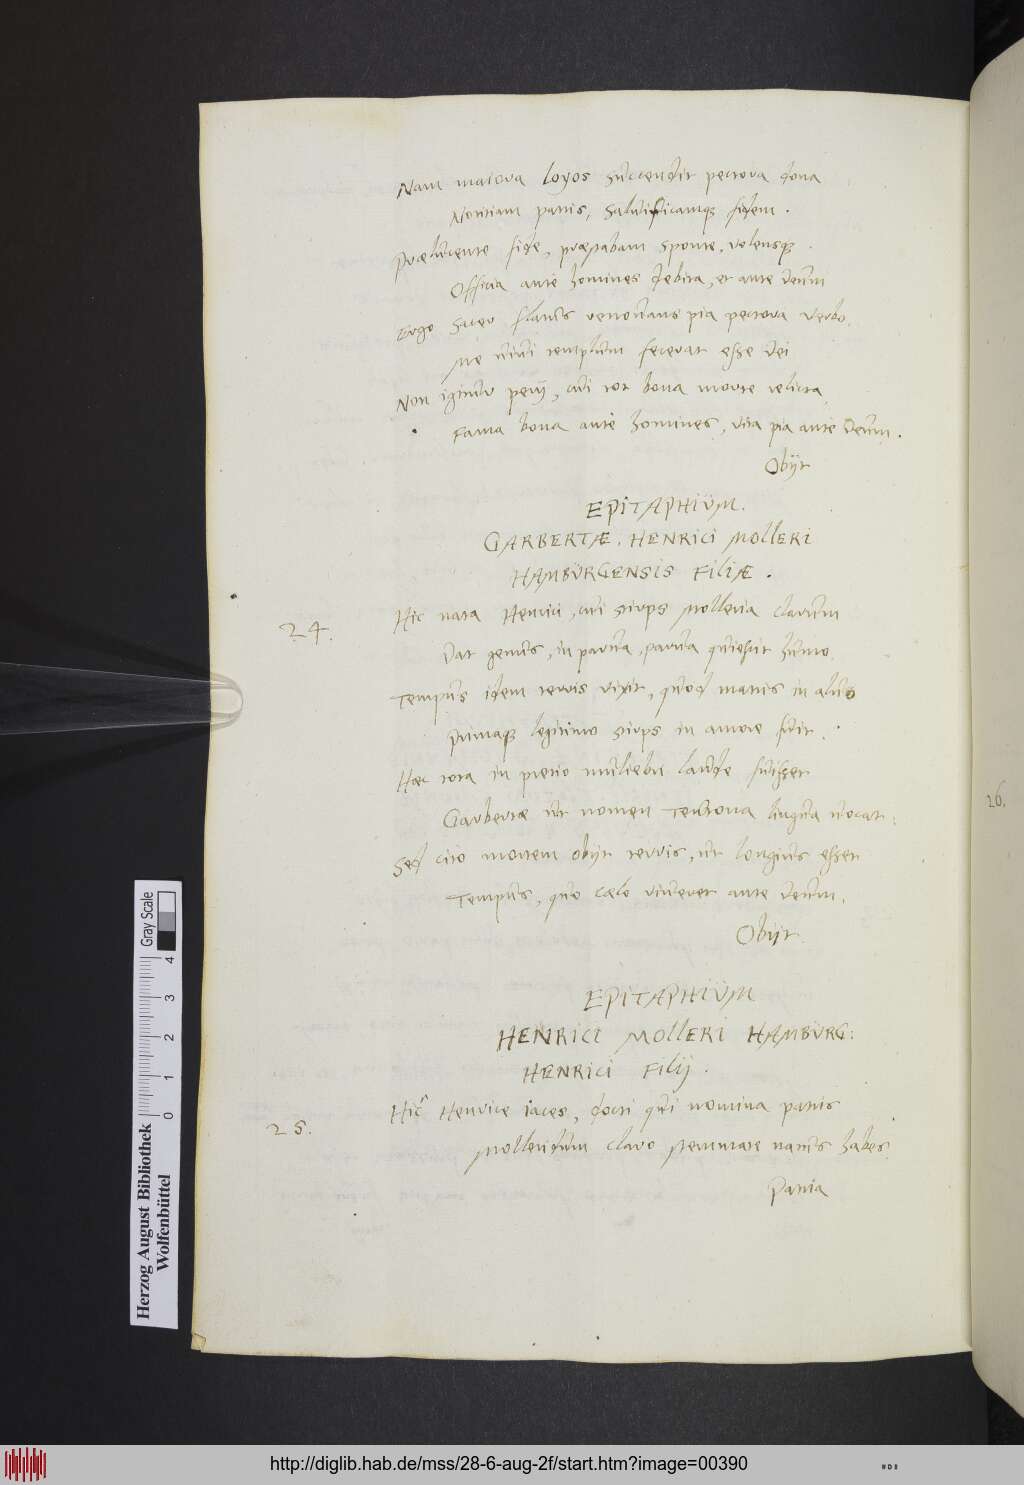 Nam maiora logos succendit pectora dona
Notitiam patris, salutificamq; fidem.
Prælucente fide, præstabam sponte, volensq;
Officia ante homines debita, et ante deum
Ergo sacer flatus renouans pia pectora verbo,
Me uiui templum fecerat esse dei
Non igitur perij, cui tot bona morte relicta,
Fama bona ante homines, vita pia ante deum.
Obijt
EPITAPHIUM.
GARBERTÆ. HENRICI MOLLERI
HAMBURGENSIS FILIÆ.
24.
Hic nata Henrici, cui stirps Molleria clarum
Dat genus, in paruta, paruta quiescit humo.
Tempus idem terris vixit, quod matris in aluo
Primaq; legitimo stirps in amore fuit.
Hæc tota in pretio muliebri laude fuisset
Garbertæ ut nomen Teutona lingua uocat:
Sed cito mortem obijt terris, ut longius esset
Tempus, quo cælo viueret ante deum.
Obijt.
EPITAPHIUM
HENRICI MOLLERI HAMBURG:
HENRICI FILIJ.
25.
Hic Henrice iaces, docti qui nomina patris
Molleridum claro stemmate natus habes.
Patria
26.
Herzog August Bibliothek
Wolfenbüttel
0 1 2 3 4
Gray Scale
http://diglib.hab.de/mss/28-6-aug-2f/start.htm?image=00390